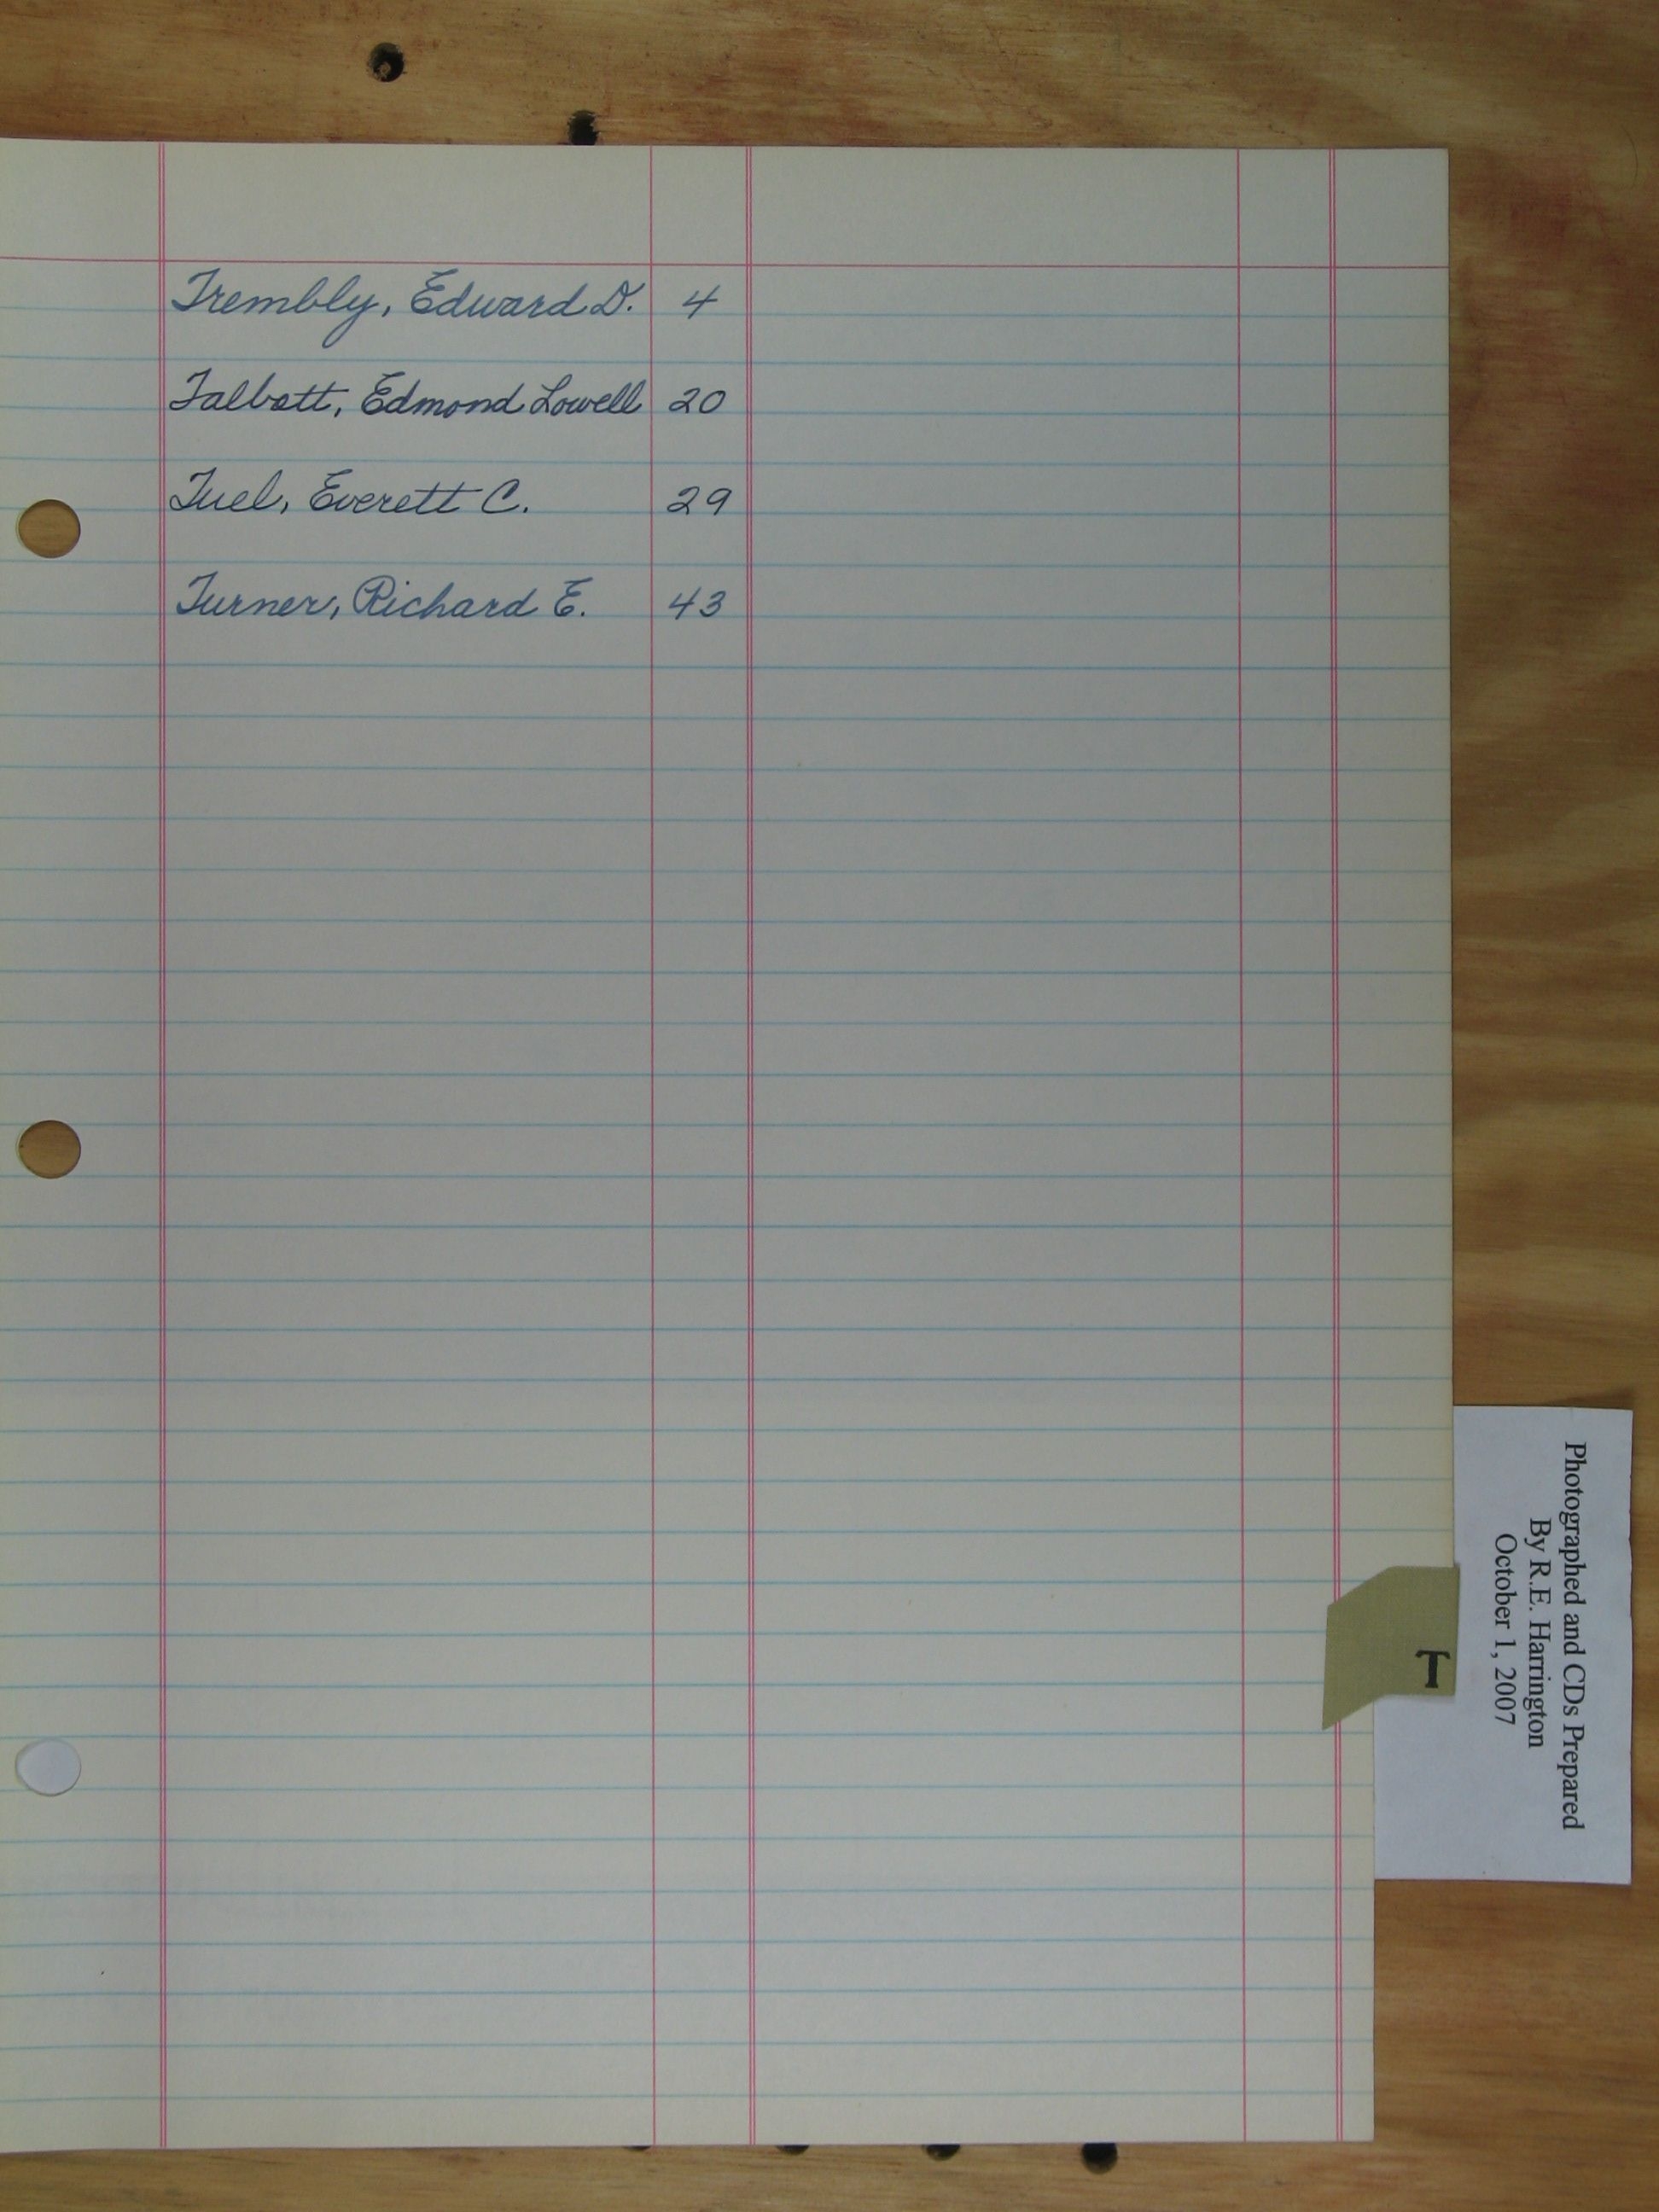 Trembly, Edward D. 4
Talbott, Edmond Lowell 20
Tuel, Everett C. 29
Turner, Richard E. 43
T
Photographed and CDs Prepared
By R.E. Harrington
October 1, 2007